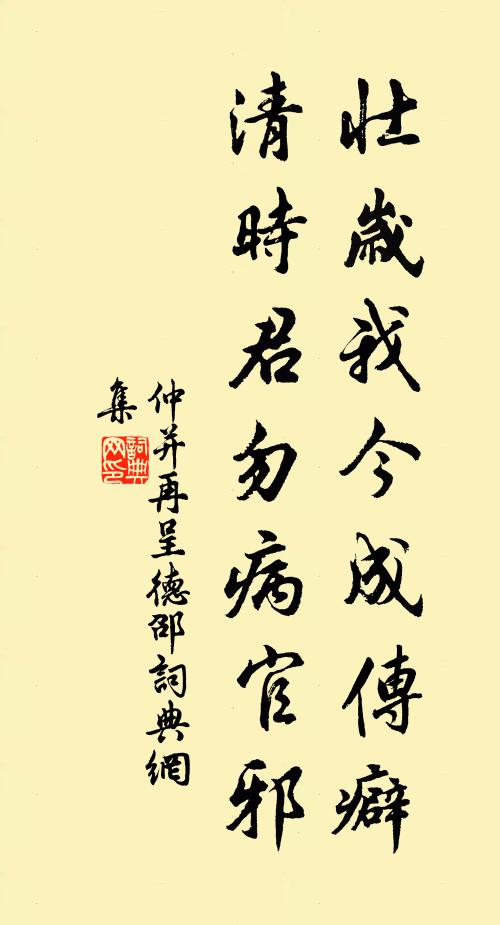 壯歲我今成傳癖
清時君勿病官邪
仲并再呈德邵詞典網
集
詞典
网印